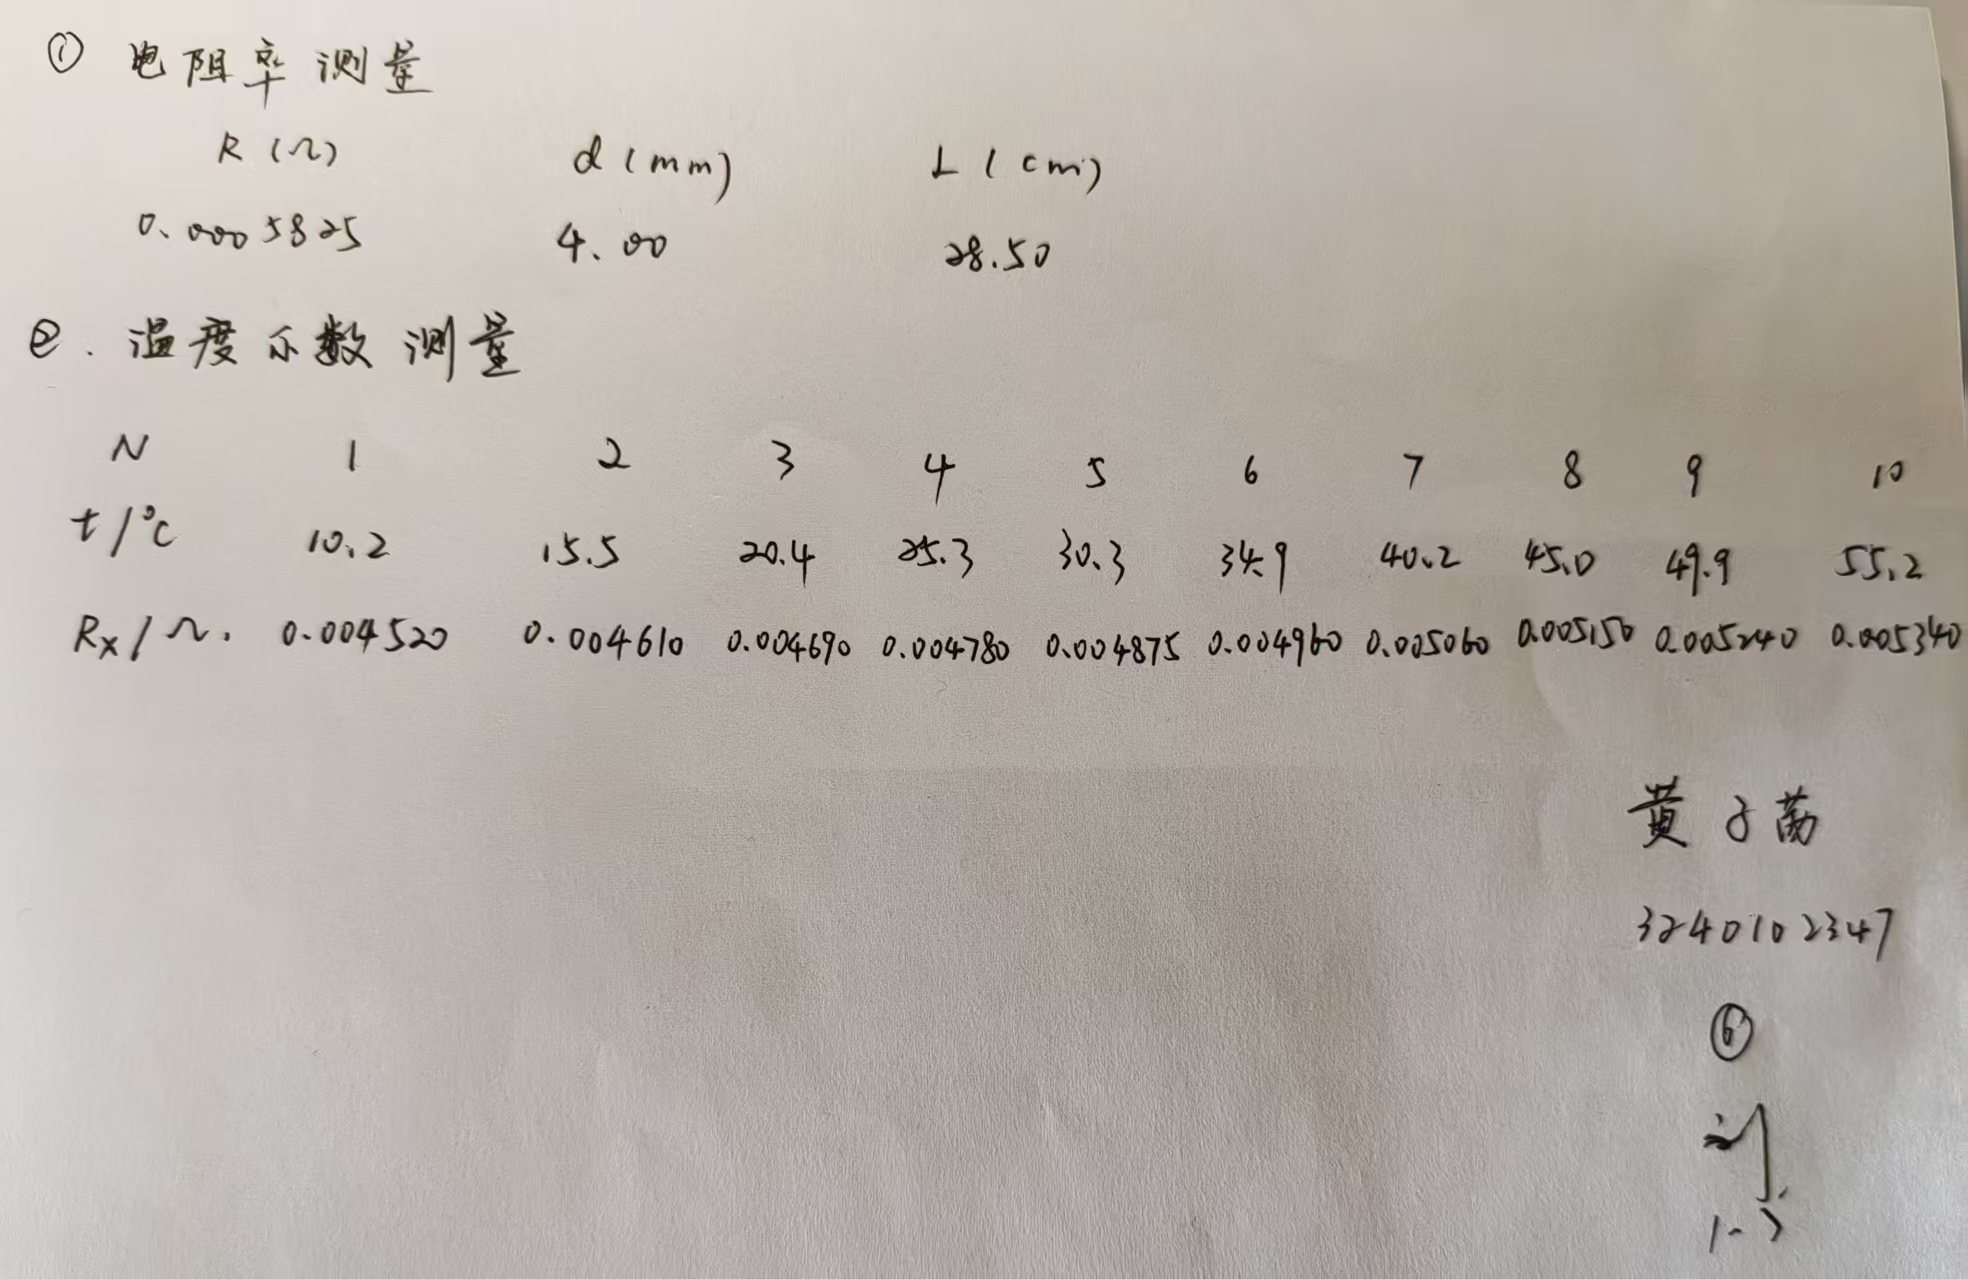 ① 电阻率测量
R (Ω) d (mm) L (cm)
0.0005825 4.00 28.50
②. 温度系数测量
N 1 2 3 4 5 6 7 8 9 10
t/°C 10.2 15.5 20.4 25.3 30.3 34.9 40.2 45.0 49.9 55.2
Rx/Ω. 0.004520 0.004610 0.004690 0.004780 0.004875 0.004960 0.005060 0.005150 0.005240 0.005340
黄子
3240102347
⑥
刘